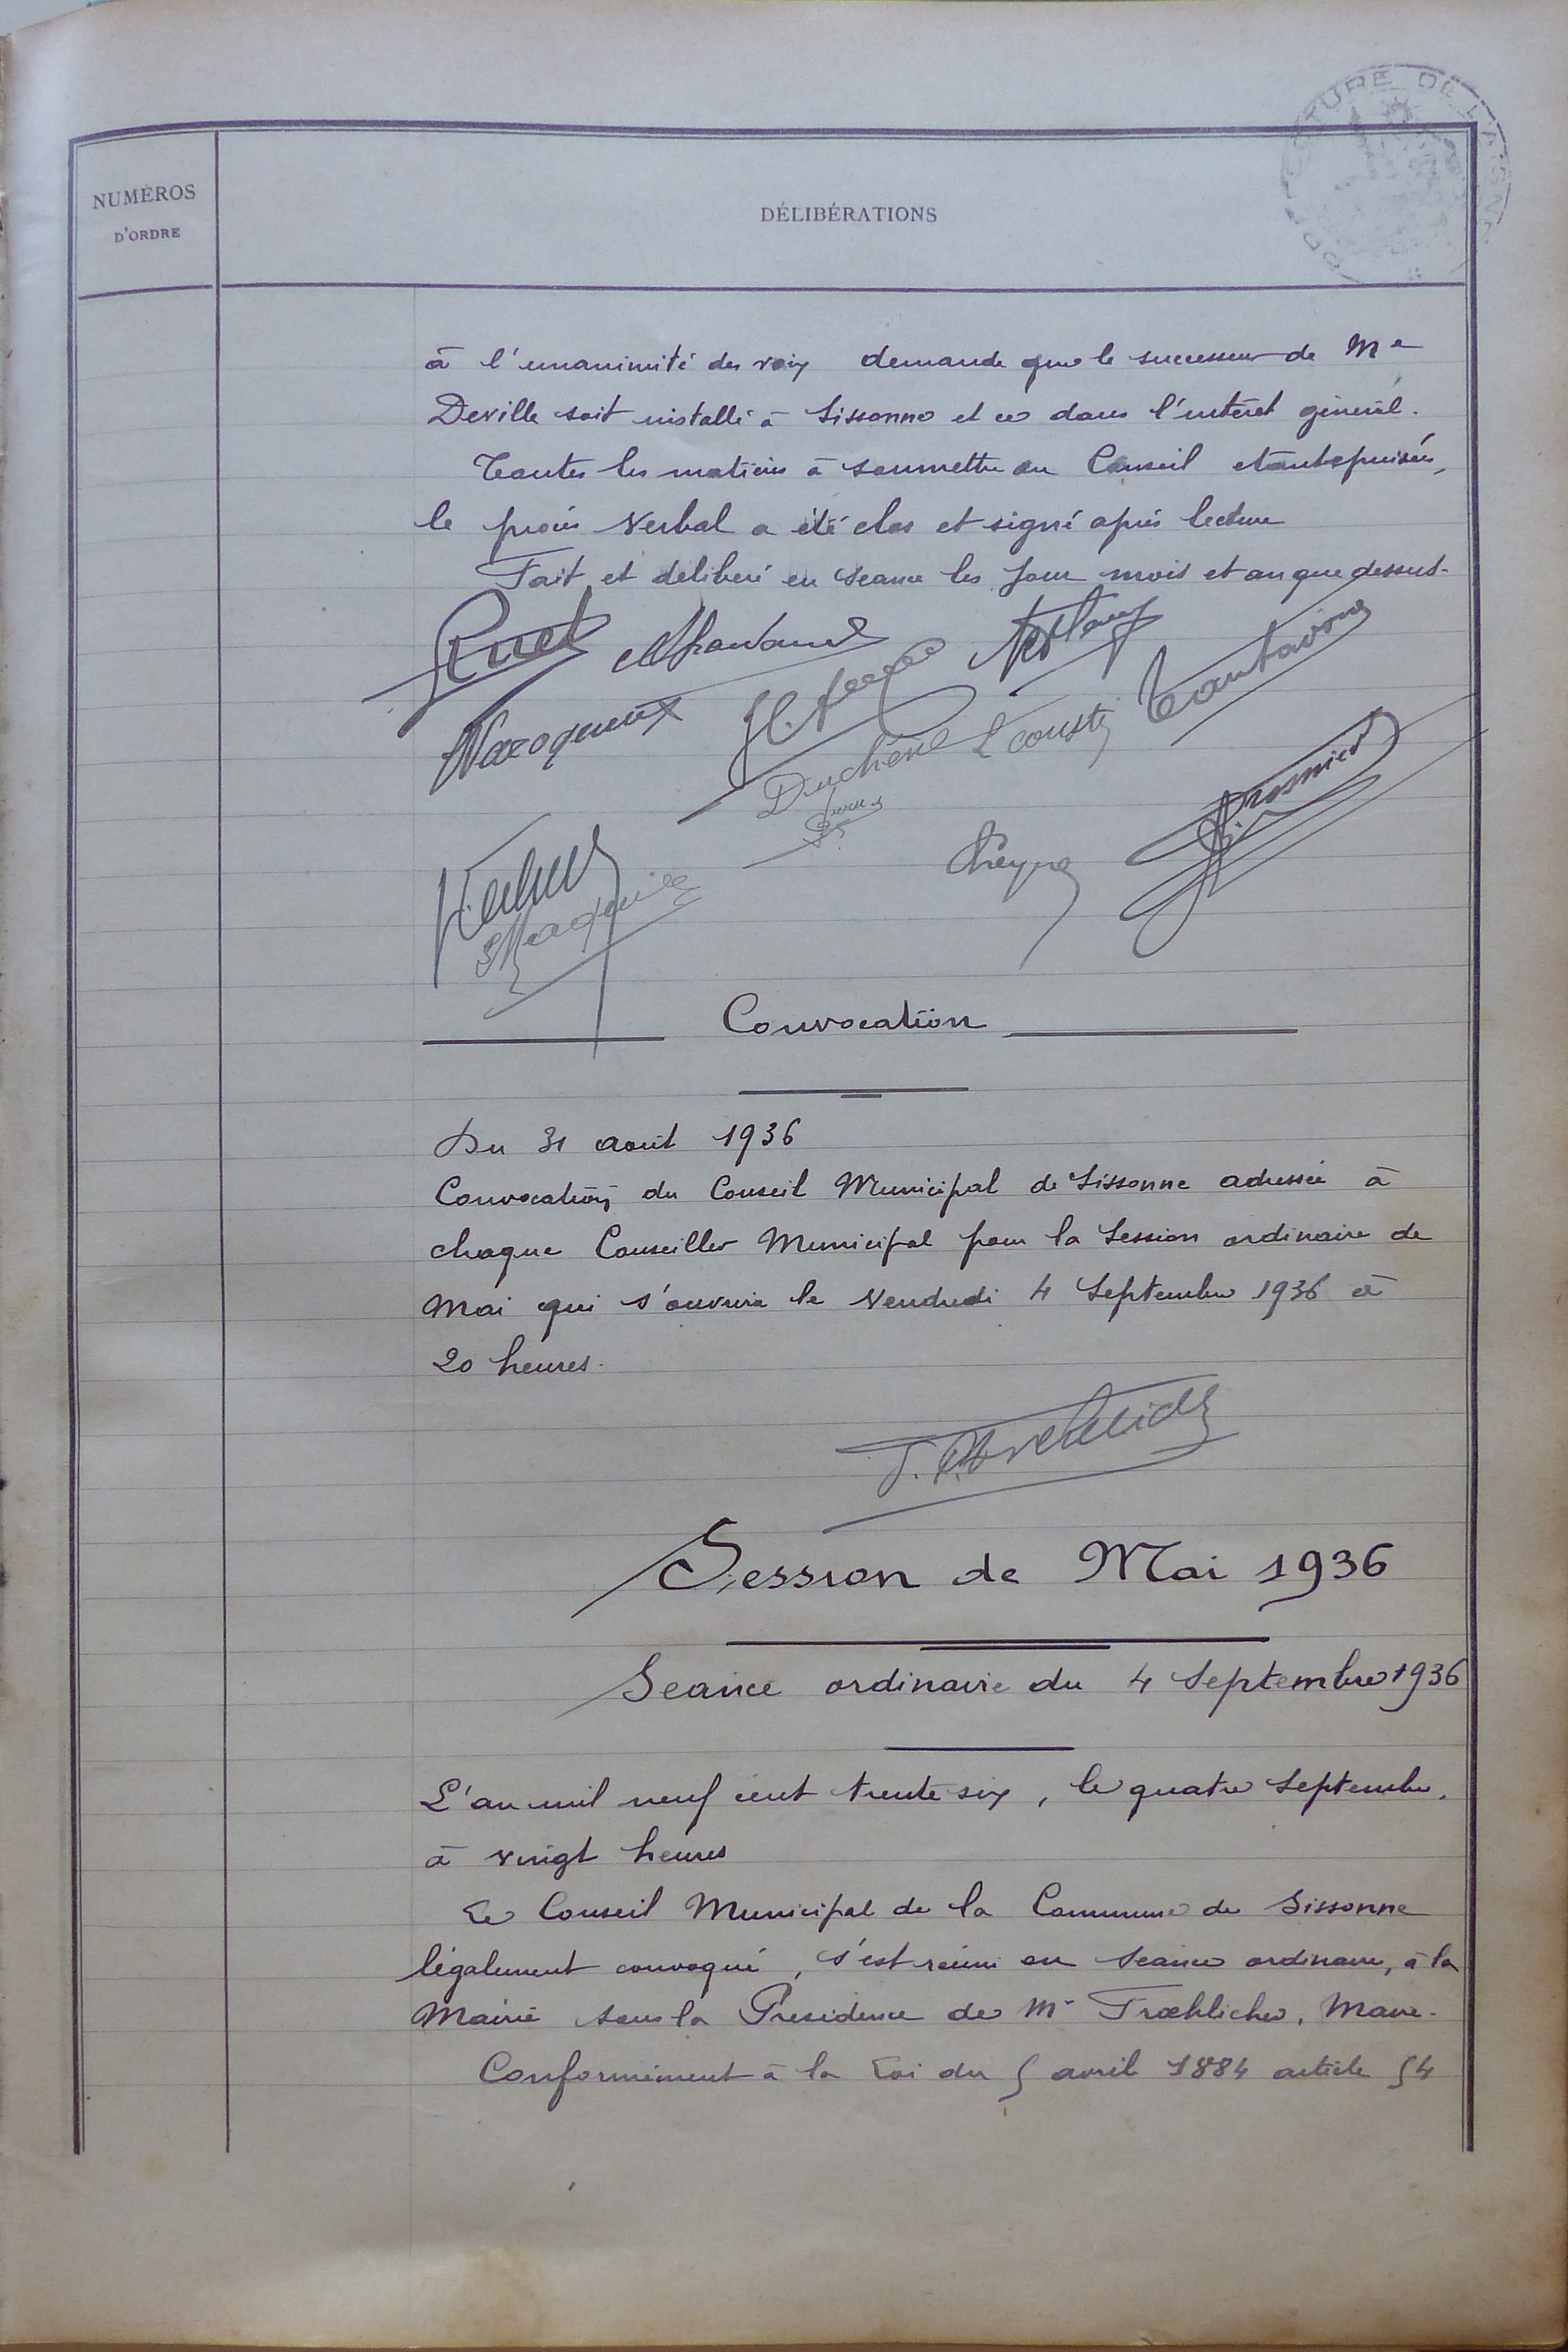 PRÉFECTURE DE L'AISNE
NUMÉROS
D'ORDRE
DÉLIBÉRATIONS
à l'unanimité des voix demande que le successeur de Me
Deville soit installé à Sissonne et ce dans l'intérêt général.
Toutes les matières à soumettre au Conseil étant épuisées,
le procès Verbal a été clos et signé après lecture
Fait et délibéré en séance les jour mois et an que dessus.
Duchêne
Convocation
Du 31 août 1936
Convocation du Conseil Municipal de Sissonne adressée à
chaque Conseiller Municipal pour la Session ordinaire de
Mai qui s'ouvrira le Vendredi 4 Septembre 1936 à
20 heures.
Session de Mai 1936
Séance ordinaire du 4 Septembre 1936
L'an mil neuf cent trente six, le quatre Septembre,
à vingt heures
Le Conseil Municipal de la Commune de Sissonne
légalement convoqué, s'est réuni en séance ordinaire, à la
Mairie sous la Présidence de Mr Froehlicher, Maire.
Conformément à la Loi du 5 avril 1884 article 54